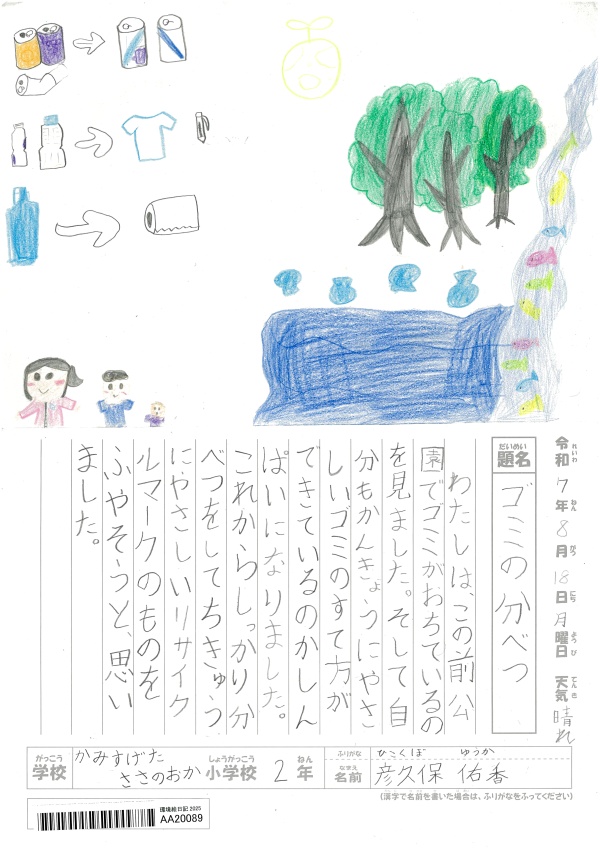 令和7年8月18日月曜日 天気 晴れ
れいわ ねん がつ にち ようび てんき
だいめい
題名 ゴミの分べつ
わたしは、この前公
園でゴミがおちているの
を見ました。そして自
分もかんきょうにやさ
しいゴミのすて方が
できているのかしん
ぱいになりました。
これからしっかり分
べつをしてちきゅう
にやさしいリサイク
ルマークのものを
ふやそうと、思い
ました。
がっこう
学校 かみすげた ささのおか
しょうがっこう ねん
小学校 2年
ふりがな ひこくぼ ゆうか
なまえ
名前 彦久保 佑香
(漢字で名前を書いた場合は、ふりがなをふってください)
環境絵日記 2025
AA20089